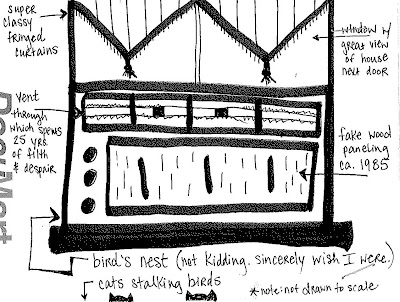 super
classy
fringed
curtains
window w/
great view
of house
next door
Vent
through
which spews
25 yrs.
of filth
& despair
fake wood
paneling
ca. 1985
bird's nest (not kidding. sincerely wish I were.)
cats stalking birds
*note: not drawn to scale